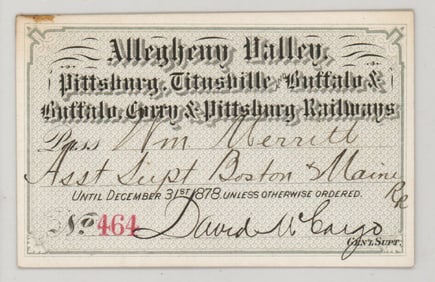 Allegheny Valley,
Pittsburg, Titusville and Buffalo &
Buffalo, Corry & Pittsburg Railways
Pass Wm Merritt
Asst Supt Boston & Maine RR
UNTIL DECEMBER 31ST 1878, UNLESS OTHERWISE ORDERED.
No 464 David McCargo
GEN'L SUPT.